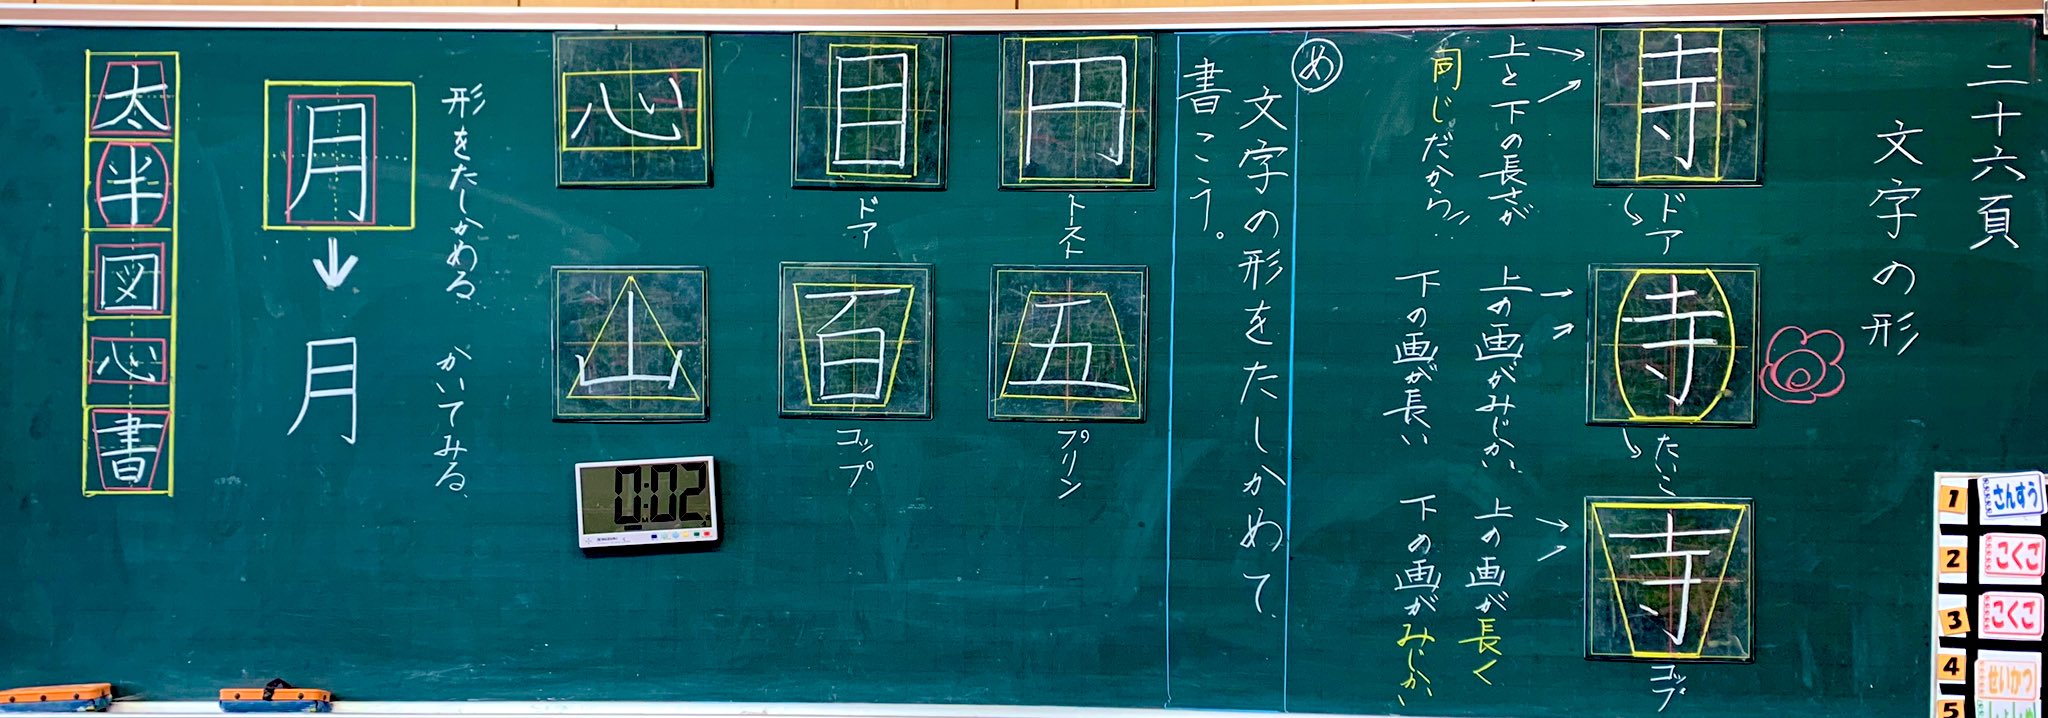 二十六頁
文字の形
寺
ドア
上と下の長さが
同じだから
寺
たいこ
上の画がみじかい
下の画が長い
寺
コップ
上の画が長く
下の画がみじかい
め
文字の形をたしかめて、
書こう。
円
トースト
五
プリン
目
ドア
百
コップ
心
山
0:02
形をたしかめる、かいてみる、
月
月
太
半
図
心
書
1 さんすう
2 こくご
3 こくご
4 せいかつ
5